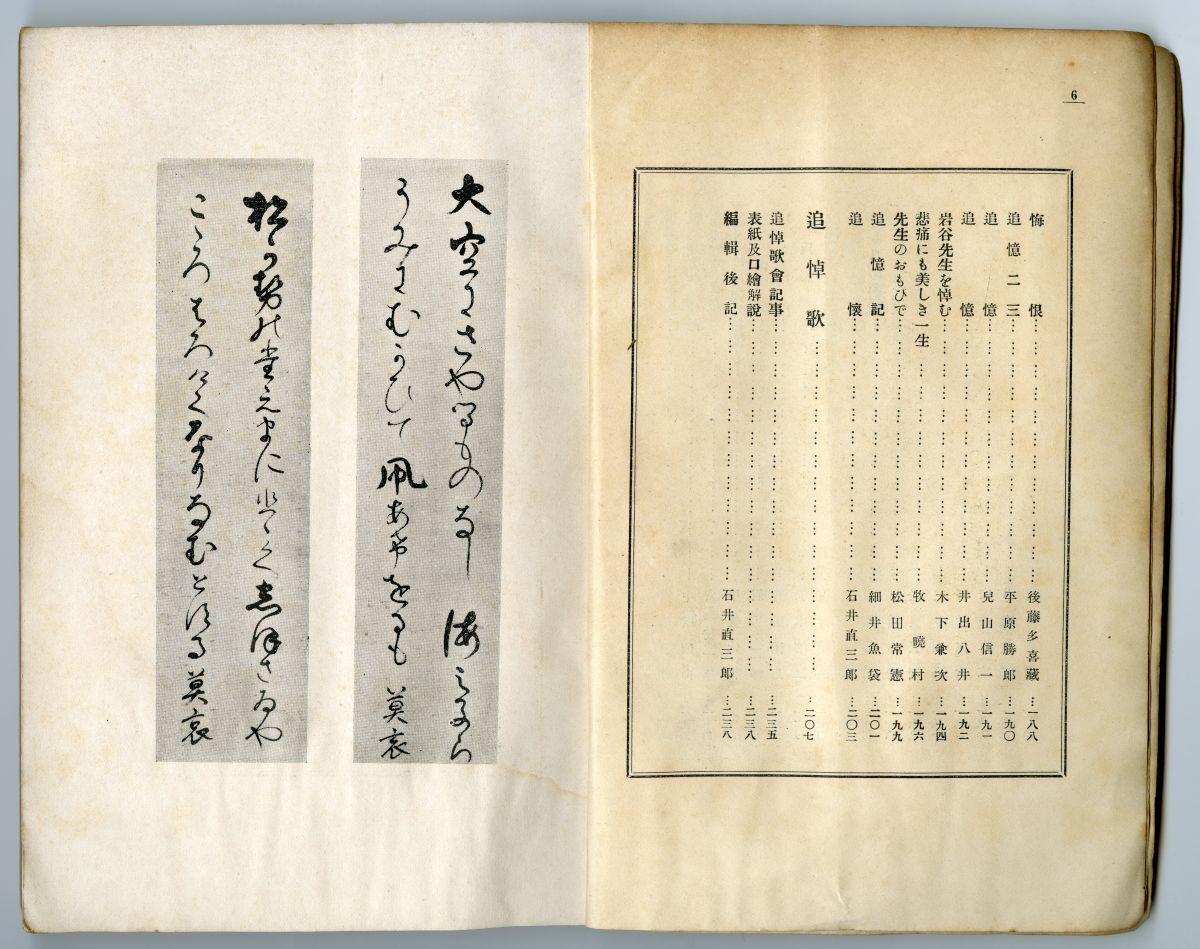 6
悔恨……後藤多喜藏…一八八
追憶二三……平原勝郎…一九〇
追憶……兒山信一…一九一
追憶……井出八井…一九二
岩谷先生を悼む……木下兼次…一九四
悲痛にも美しき一生……牧曉村…一九六
先生のおもひで……松田常憲…一九九
追憶記……細井魚袋…二〇一
追懷……石井直三郎…二〇三
追悼歌……二〇七
追悼歌會記事……二三五
表紙及口繪解說……二三八
編輯後記……石井直三郎…二三八
大空にさやるものなし 海
うみにむかひて凧あげをるも 莫哀
松可勢の堂えまに悲ゝく志保さゐや
こゝろ なりなむとする 莫哀